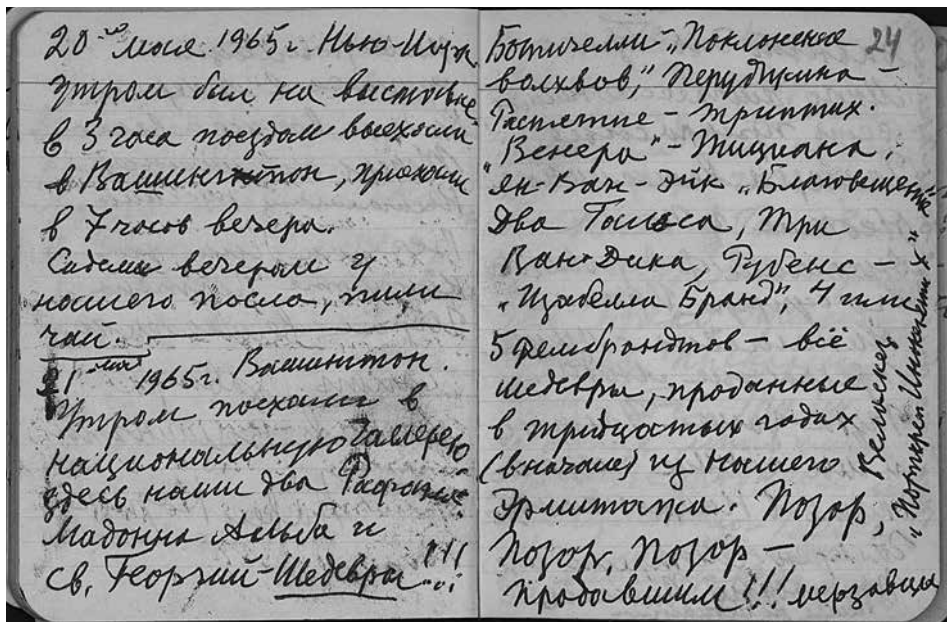 20-го мая 1965 г. Нью-Йорк
Утром был на выставке
в 3 часа поездом выехали
в Вашингтон, приехали
в 7 часов вечера.
Сидели вечером у
нашего посла, пили
чай.
21 мая 1965 г. Вашингтон.
Утром поехали в
национальную галерею
здесь наши два Рафаэля
Мадонна Альба и
св. Георгий – Шедевры!!!
24
Ботичелли – „Поклонение
волхвов", Перуджина –
Распятие – триптих.
"Венера" – Тициана,
Ян-Ван-Эйк „Благовещение"
Два Гальса, Три
Ван-Дика, Рубенс –
„Изабелла Брандт", 4 или
5 Рембрандтов – всё
шедевры, проданные
в тридцатых годах
(вначале) из нашего
Эрмитажа. Позор,
Позор, Позор –
продавшим!!! мерзавцы
Веласкез
„Портрет Иннокентия X"